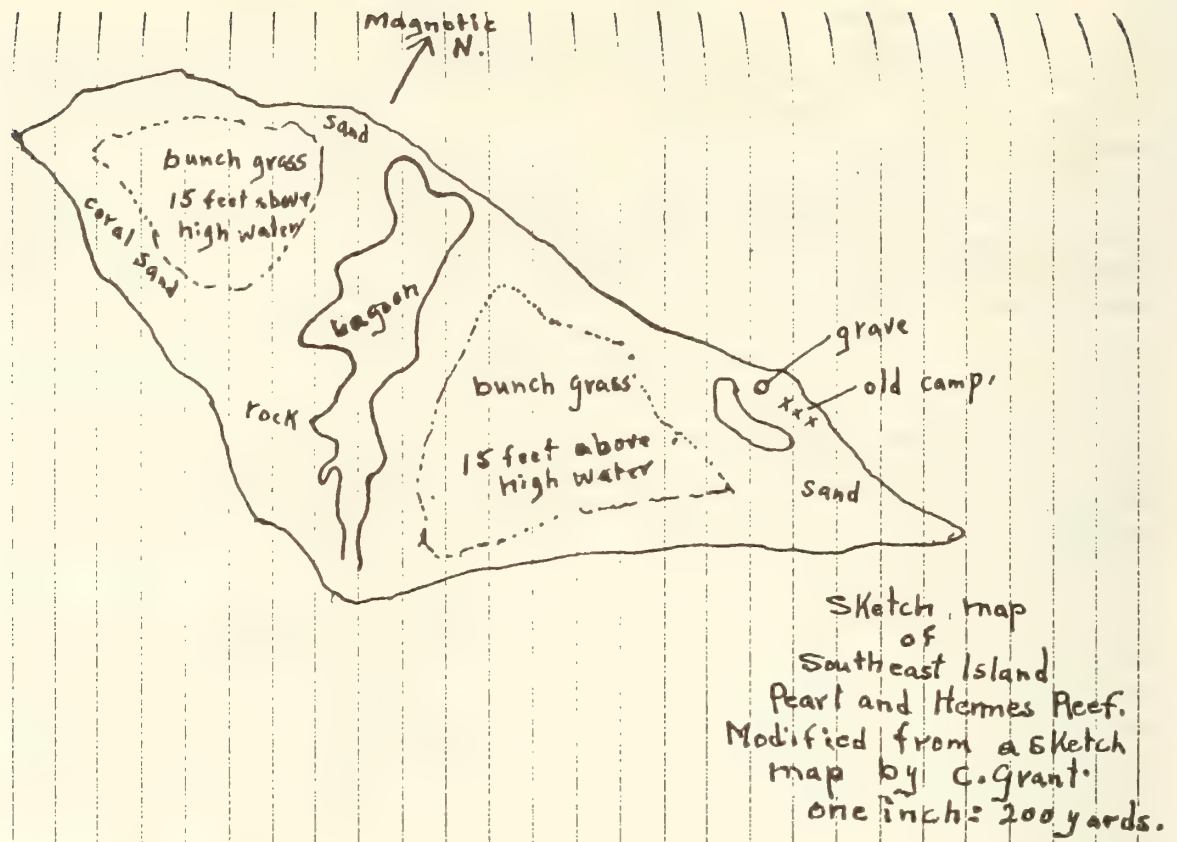 Magnetic
N.
sand
bunch grass
15 feet above
high water
coral
sand
Lagoon
grave
old camp.
bunch grass
rock
15 feet above
high water
sand
Sketch map
of
Southeast Island
Pearl and Hermes Reef.
Modified from a sketch
map by C. Grant.
one inch = 200 yards.